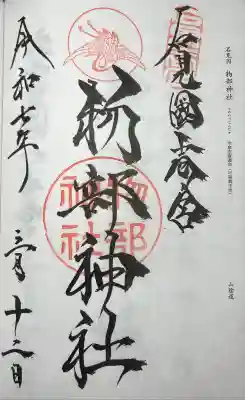 石見国 物部神社
山陰道
石見國一宮
物部神社
物部神社
令和七年
三月十二日